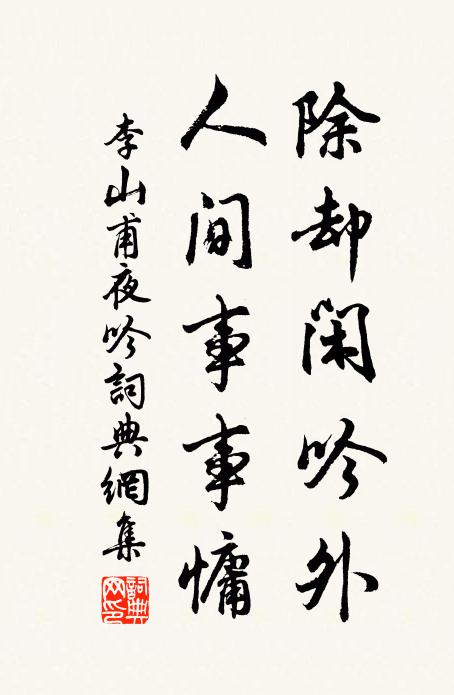 除却閑吟外
人间事事慵
李山甫夜吟詞典網集
詞典网印